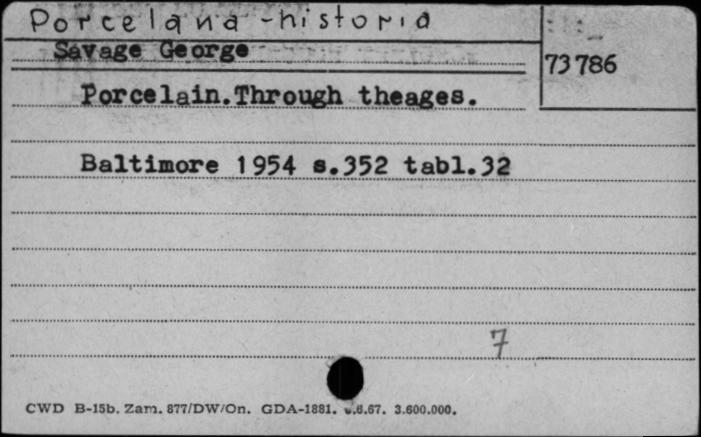 Porcelana - historia
Savage George
73 786
Porcelain.Through theages.
Baltimore 1954 s.352 tabl.32
7
CWD B-15b. Zam. 877/DW/On. GDA-1881. 6.67. 3.600.000.